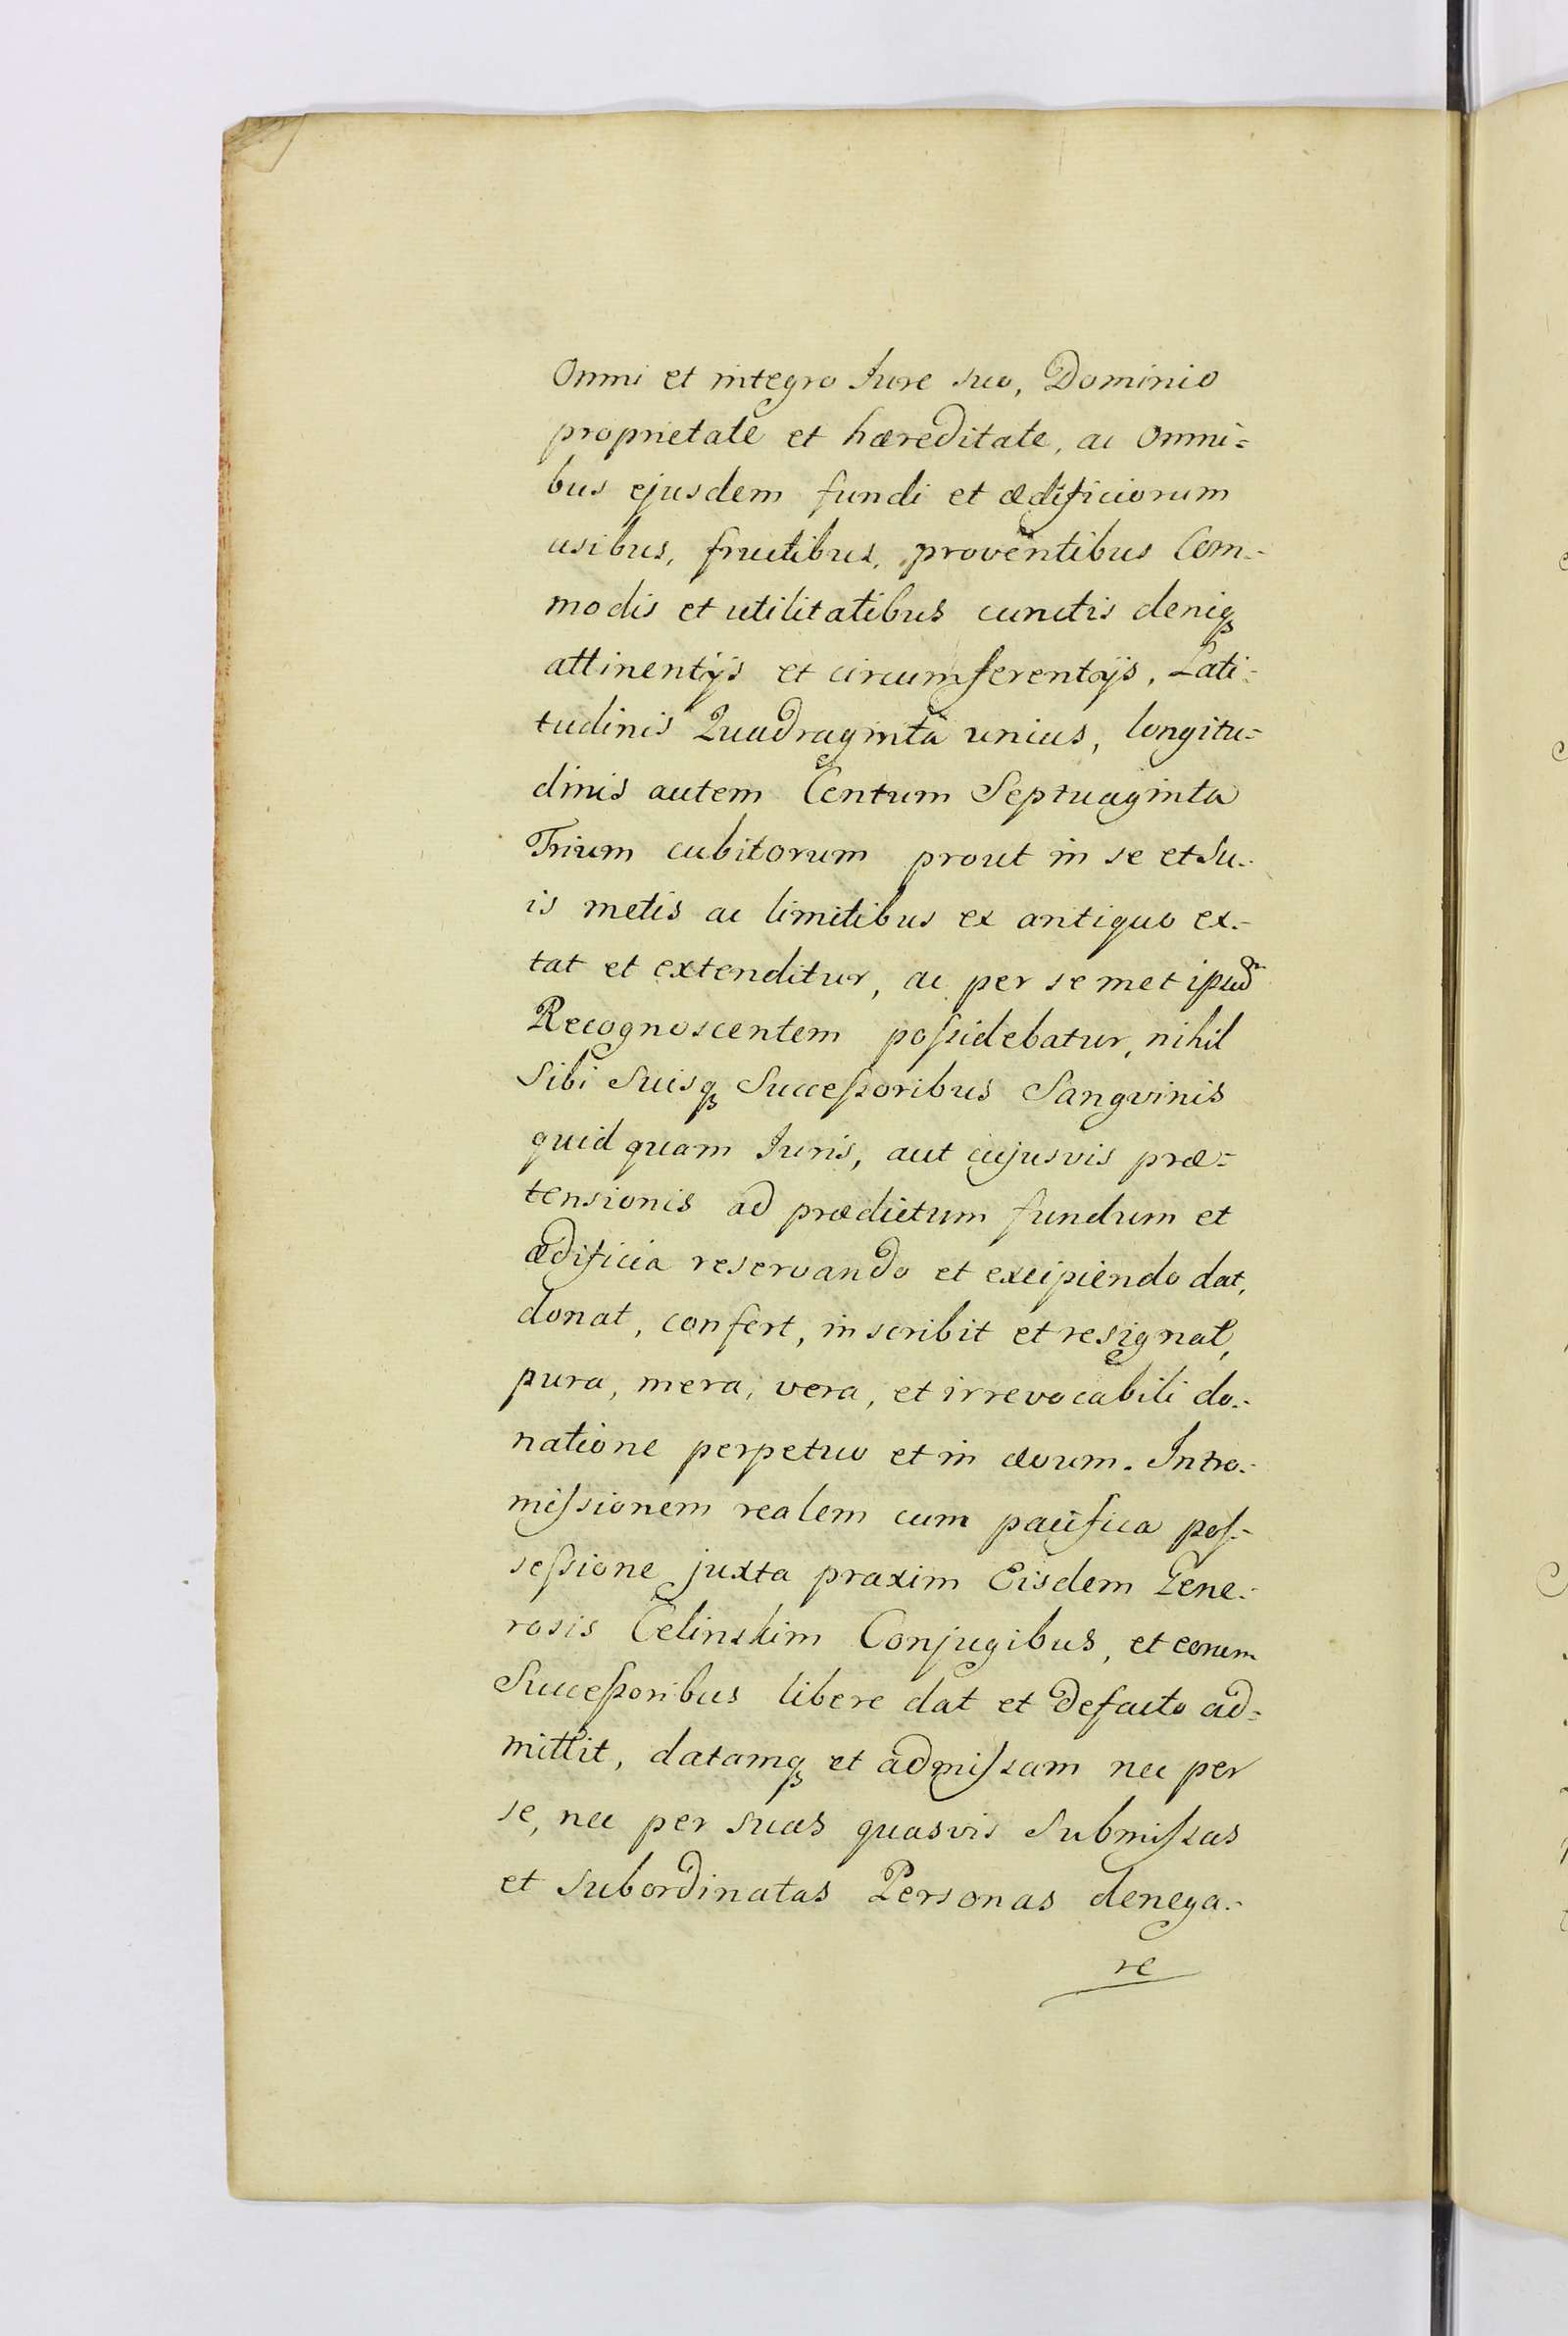 Omni et integro Jure suo, Dominio
proprietate et hæreditate, ac Omni=
bus ejusdem fundi et ædificiorum
usibus, fructibus, proventibus Com=
modis et utilitatibus cunctis deniqꝫ
attinentijs et circumferentijs, Lati=
tudinis Quadraginta unius, longitu=
dinis autem Centum Septuaginta
Trium cubitorum prout in se et Su=
is metis ac limitibus ex antiquo ex=
tat et extenditur, ac per se met ipsũ
Recognoscentem possidebatur, nihil
Sibi Suisqꝫ Successoribus Sangvinis
quid quam Juris, aut cujusvis præ=
tensionis ad prædictum fundum et
ædificia reservando et excipiendo dat,
donat, confert, inscribit et resignat,
pura, mera, vera, et irrevocabili do=
natione perpetuo et in ævum. Intro=
missionem realem cum pacifica pos=
sessione juxta praxim Eisdem Gene=
rosis Celinskim Conjugibus, et eorum
Successoribus libere dat et defacto ad=
mittit, datamqꝫ et admissam nec per
se, nec per suas quasvis Submissas
et Subordinatas Personas denega=
re